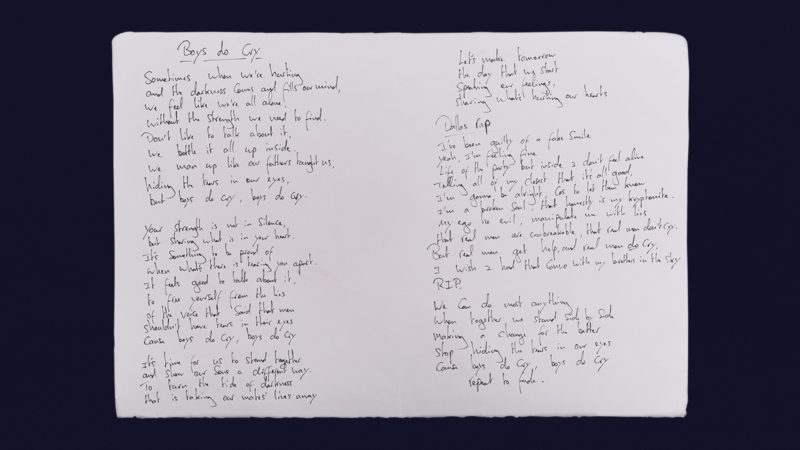 Boys do Cry
Sometimes when we're hurting
and the darkness comes and fills our mind,
we feel like we're all alone,
without the strength we need to find.
Don't like to talk about it,
we bottle it all up inside.
We man up like our fathers taught us,
hiding the tears in our eyes,
but boys do cry, boys do cry.
Your strength is not in silence,
but sharing what is in your heart.
It's something to be proud of
when what's there is tearing you apart.
It feels good to talk about it,
to free yourself from the lies
of the voice that said that men
shouldn't have tears in their eyes
Cause boys do cry, boys do cry
It's time for us to stand together
and show our sons a different way.
To turn the tide of darkness
that is taking our mates' lives away
Let's make tomorrow
the day that we start
Speaking our feelings,
sharing what's hurting our hearts
Dallas rap
I've been guilty of a fake smile
yeah, I'm feeling fine
Life of the party but inside I don't feel alive
Telling all of my closest that it's all good,
I'm gonna be alright, Cos to let them know
I'm a broken soul, that honesty is my kryptonite.
My ego he evil, manipulate me with lies
that real men are unbreakable, that real men don't cry.
But real men get help, and real men do cry,
I wish I had that convo with my brothers in the sky
R.I.P.
We can do most anything
when together we stand side by side
Making a change for the better
Stop hiding the tears in our eyes
Cause boys do cry, boys do cry
repeat to fade.